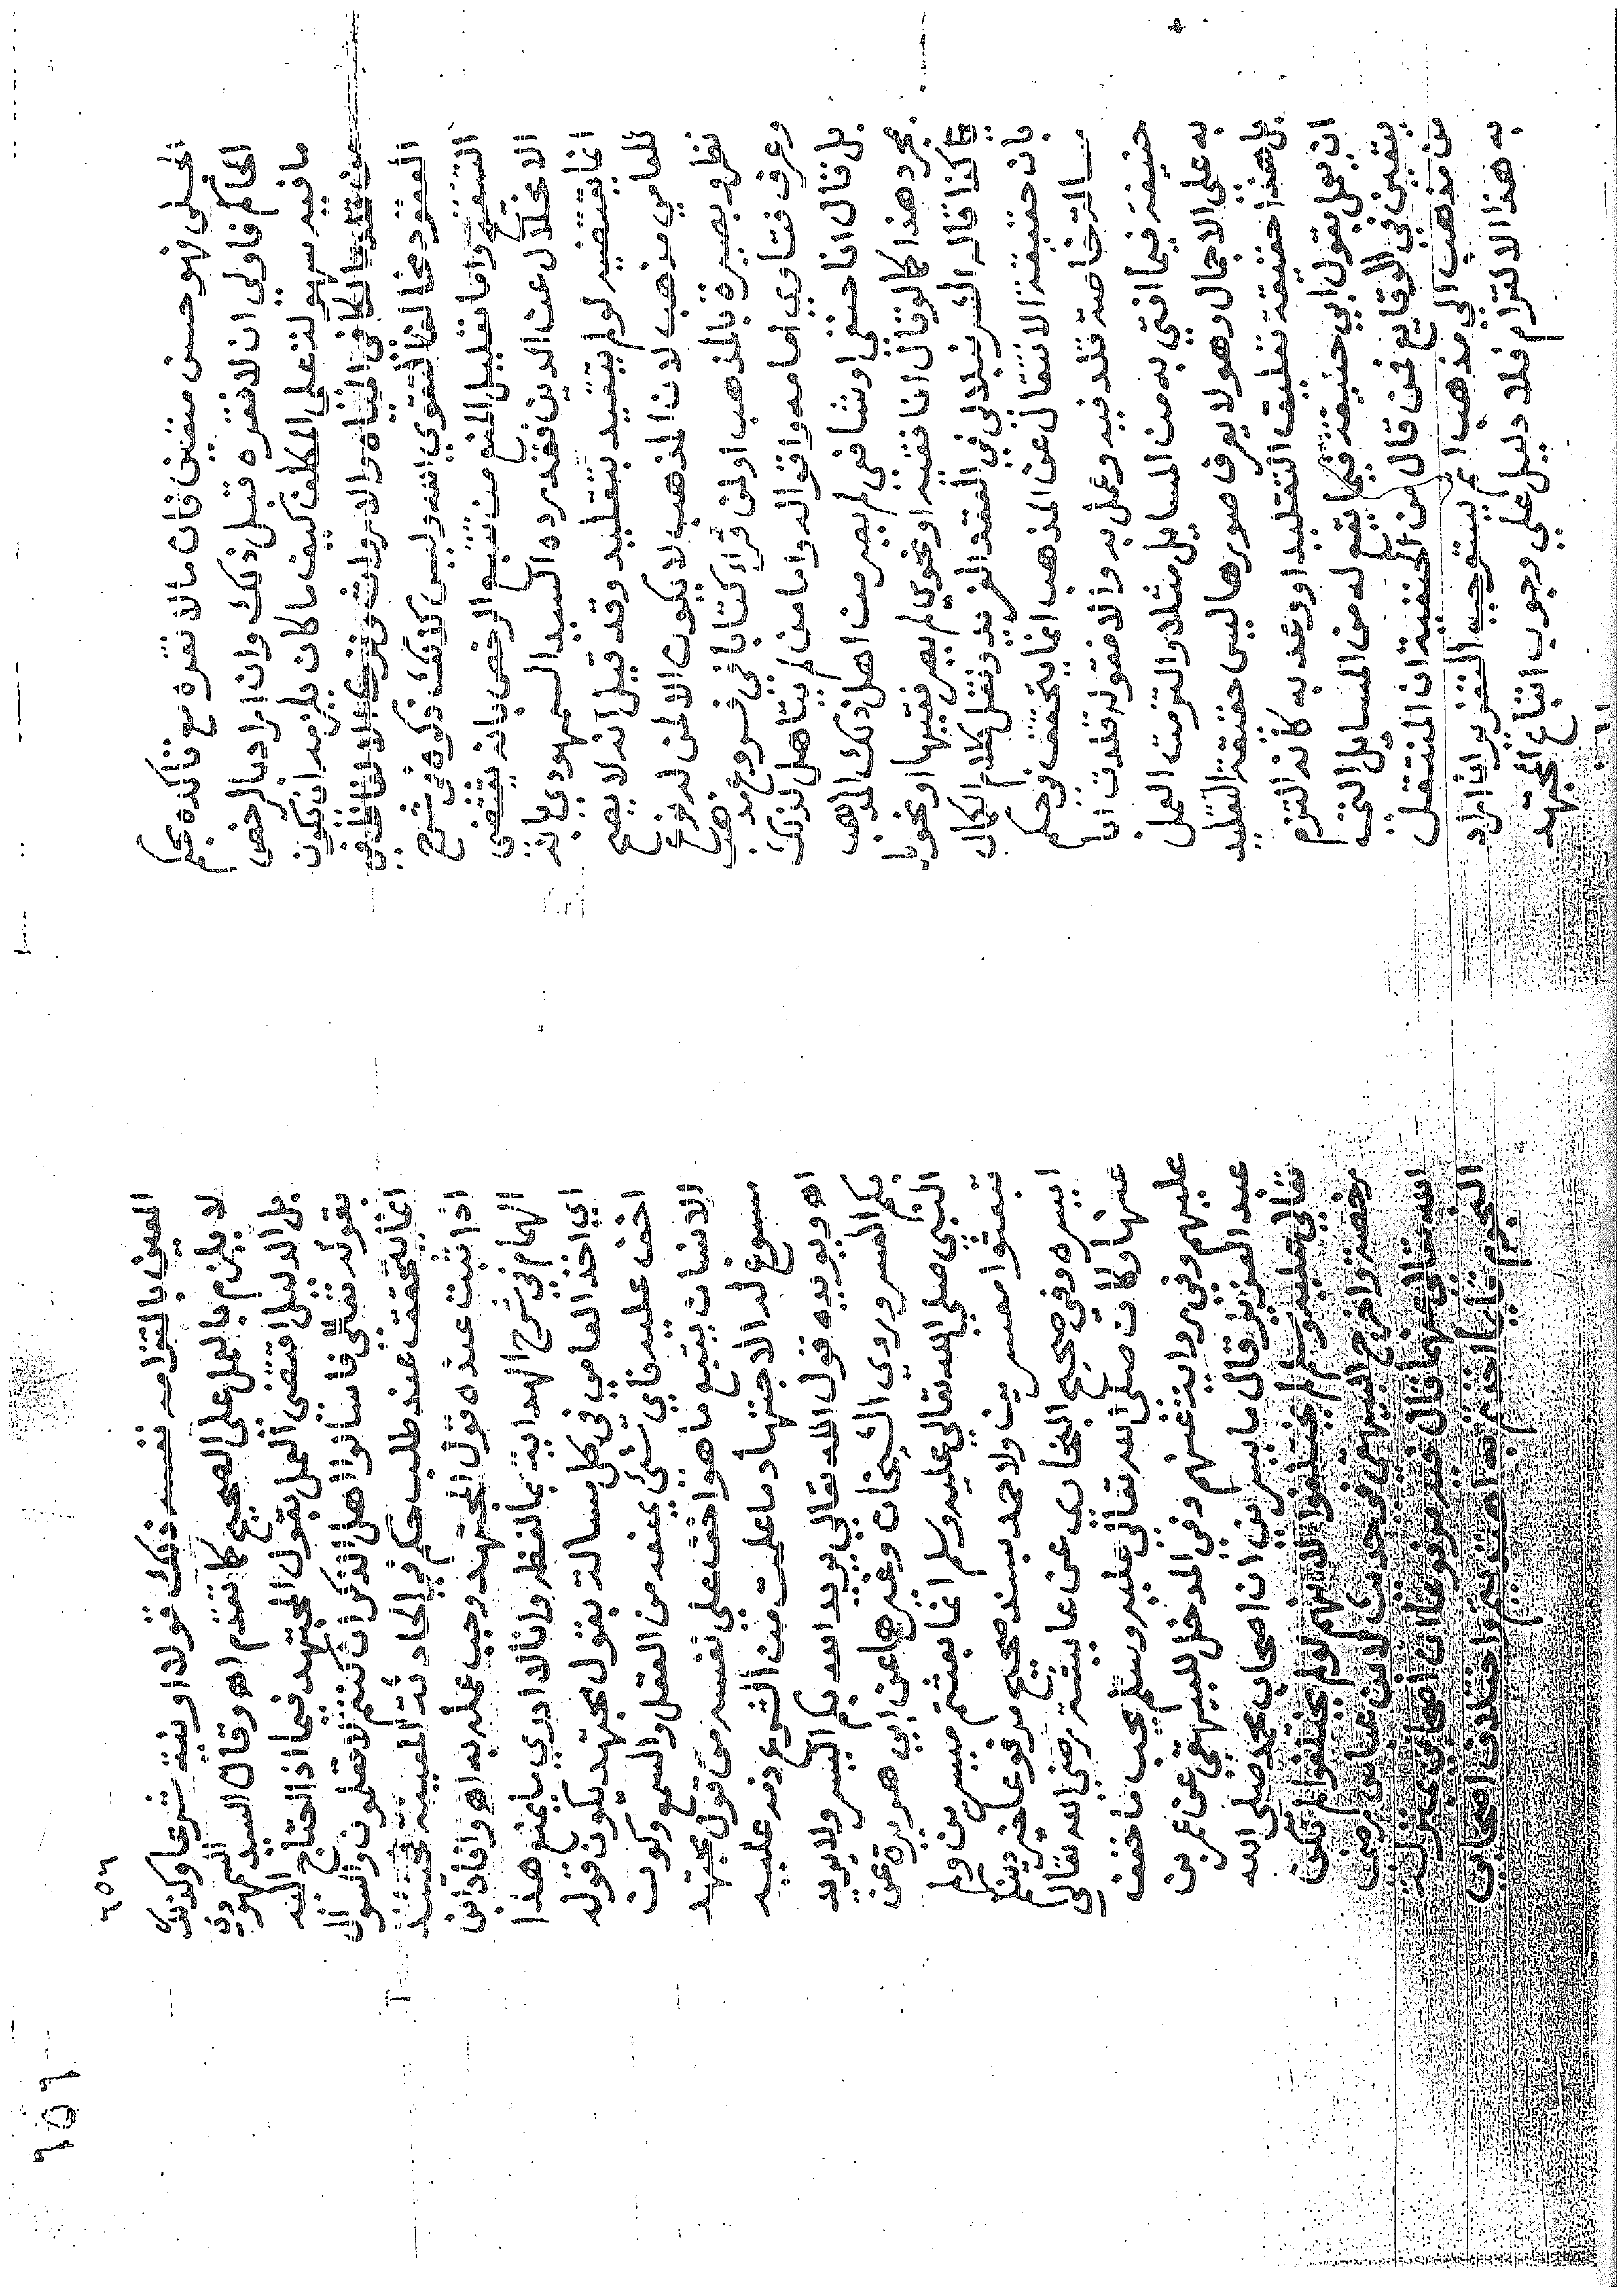 الحنبلي فهو حسن متعين فان مالا نقره مع تأكده بحكم
الحاكم فاولى ان لا نقره قبل ذلك وان اراد بالرخص
ما فيه سهولة على المكلف كيف ما كان يلزمه ان يكون
من قلد مالكا في المياه والارواث وترك الالفاظ في
العقود مخالفا لتقوى الله وليس كذلك ذكره في شرح
التنقيح واما تعليل المنع من تتبع الرخص بانه يفضي
الانحلال عن الدين فقد رده السيد السمهودي بانه
انما يقتضيه لو لم يتقيد بتقليد وقد قيل انه لا يصح
للعامي مذهب لان المذهب لا يكون الا لمن له نوع
نظر وبصيرة بالمذهب او لمن قراء كتابا في فروع مذهب
وعرف فتاوي امامه واقواله واما من لم يتاهل لذلك
بل قال انا حنفي او شافعي لم يصر من اهل ذلك المذهب
بمجرد هذا كما لو قال انا فقيه او نحوي لم يصر فقيها او نحويا
كذا قاله الشرنبلالي في العقد الفريد ونقل كلام الكمال
بان حقيقة الانتقال عن المذهب انما يتحقق في حكم
مسالة خاصة قلد فيه وعمل به والا فقوله قلدت ابا
حنيفة فيما افتي به من المسايل مثلا والتزمت العمل
به على الاجمال وهو لا يعرف صورها ليس حقيقة التقليد
بل هذا حقيقة تعليق التقليد او وعد به كانه التزم
ان يعمل بقول ابي حنيفة فيما يقع له من المسايل التي
يتعين في الوقايع فمن قال من الحنفية ان المنتقل
من مذهب الى مذهب اثم يستوجب التعزير ان اراد
به هذا الالتزام فلا دليل على وجوب اتباع المجتهد
٢٥٦
٢٥٦
المعين بالتزامه نفسه ذلك قولا او نية شرعا وكذلك
لا يلزم بالعمل على الصحيح كما تقدم اه وقال السيد السمهودي
بل الدليل اقتضى العمل بقول المجتهد فيما اذا احتاج اليه
بقوله تعالى فاسالوا اهل الذكر ان كنتم لا تعلمون والسوال
انما يتحقق عند طلب حكم في الحادثة المعينة فحينئذ
اذا ثبت عنده قول المجتهد وجب عمله به اه وافاد ابن
الهمام في شرح الهداية بما لفظه وانا لا ادري ما يمنع هذا
اي اخذ العامي في كل مسالة بقول مجتهد يكون قوله
اخف عليه فاي شي يمنعه من العقل والسمع وكون
الانسان يتبع ما هو اخف على نفسه من قول مجتهد
مسوغ له الاجتهاد ما علمت من الشرع ذمه عليه
اه ويويده قول الله تعالى يريد الله بكم اليسر ولا يريد
بكم العسر وروى الشيخان وغيرهما عن ابي هريرة عن
النبي صلى الله تعالى عليه وسلم انما بعثتم ميسرين ولم
تبعثوا معسرين ولاحمد بسند صحيح مرفوعا خير دينكم
ايسره وفي صحيح البخاري عن عايشة رضي الله تعالى
عنها وكان صلى الله تعالى عليه وسلم يحب ما خفف
عليهم وفي رواية عنهم وفي المدخل للبيهقي عن عمر بن
عبد العزيز قال ما يسرني ان اصحاب محمد صلى الله
تعالى عليه وسلم لم يختلفوا لانهم لو لم يختلفوا لم تكن
رخصة واخرج البيهقي في حديث لابن عباس رضي
الله تعالى عنهما قال فيه مرفوعا ان اصحابي بمنزلة
النجوم فايما اخذتم به اهتديتم واختلاف اصحابي